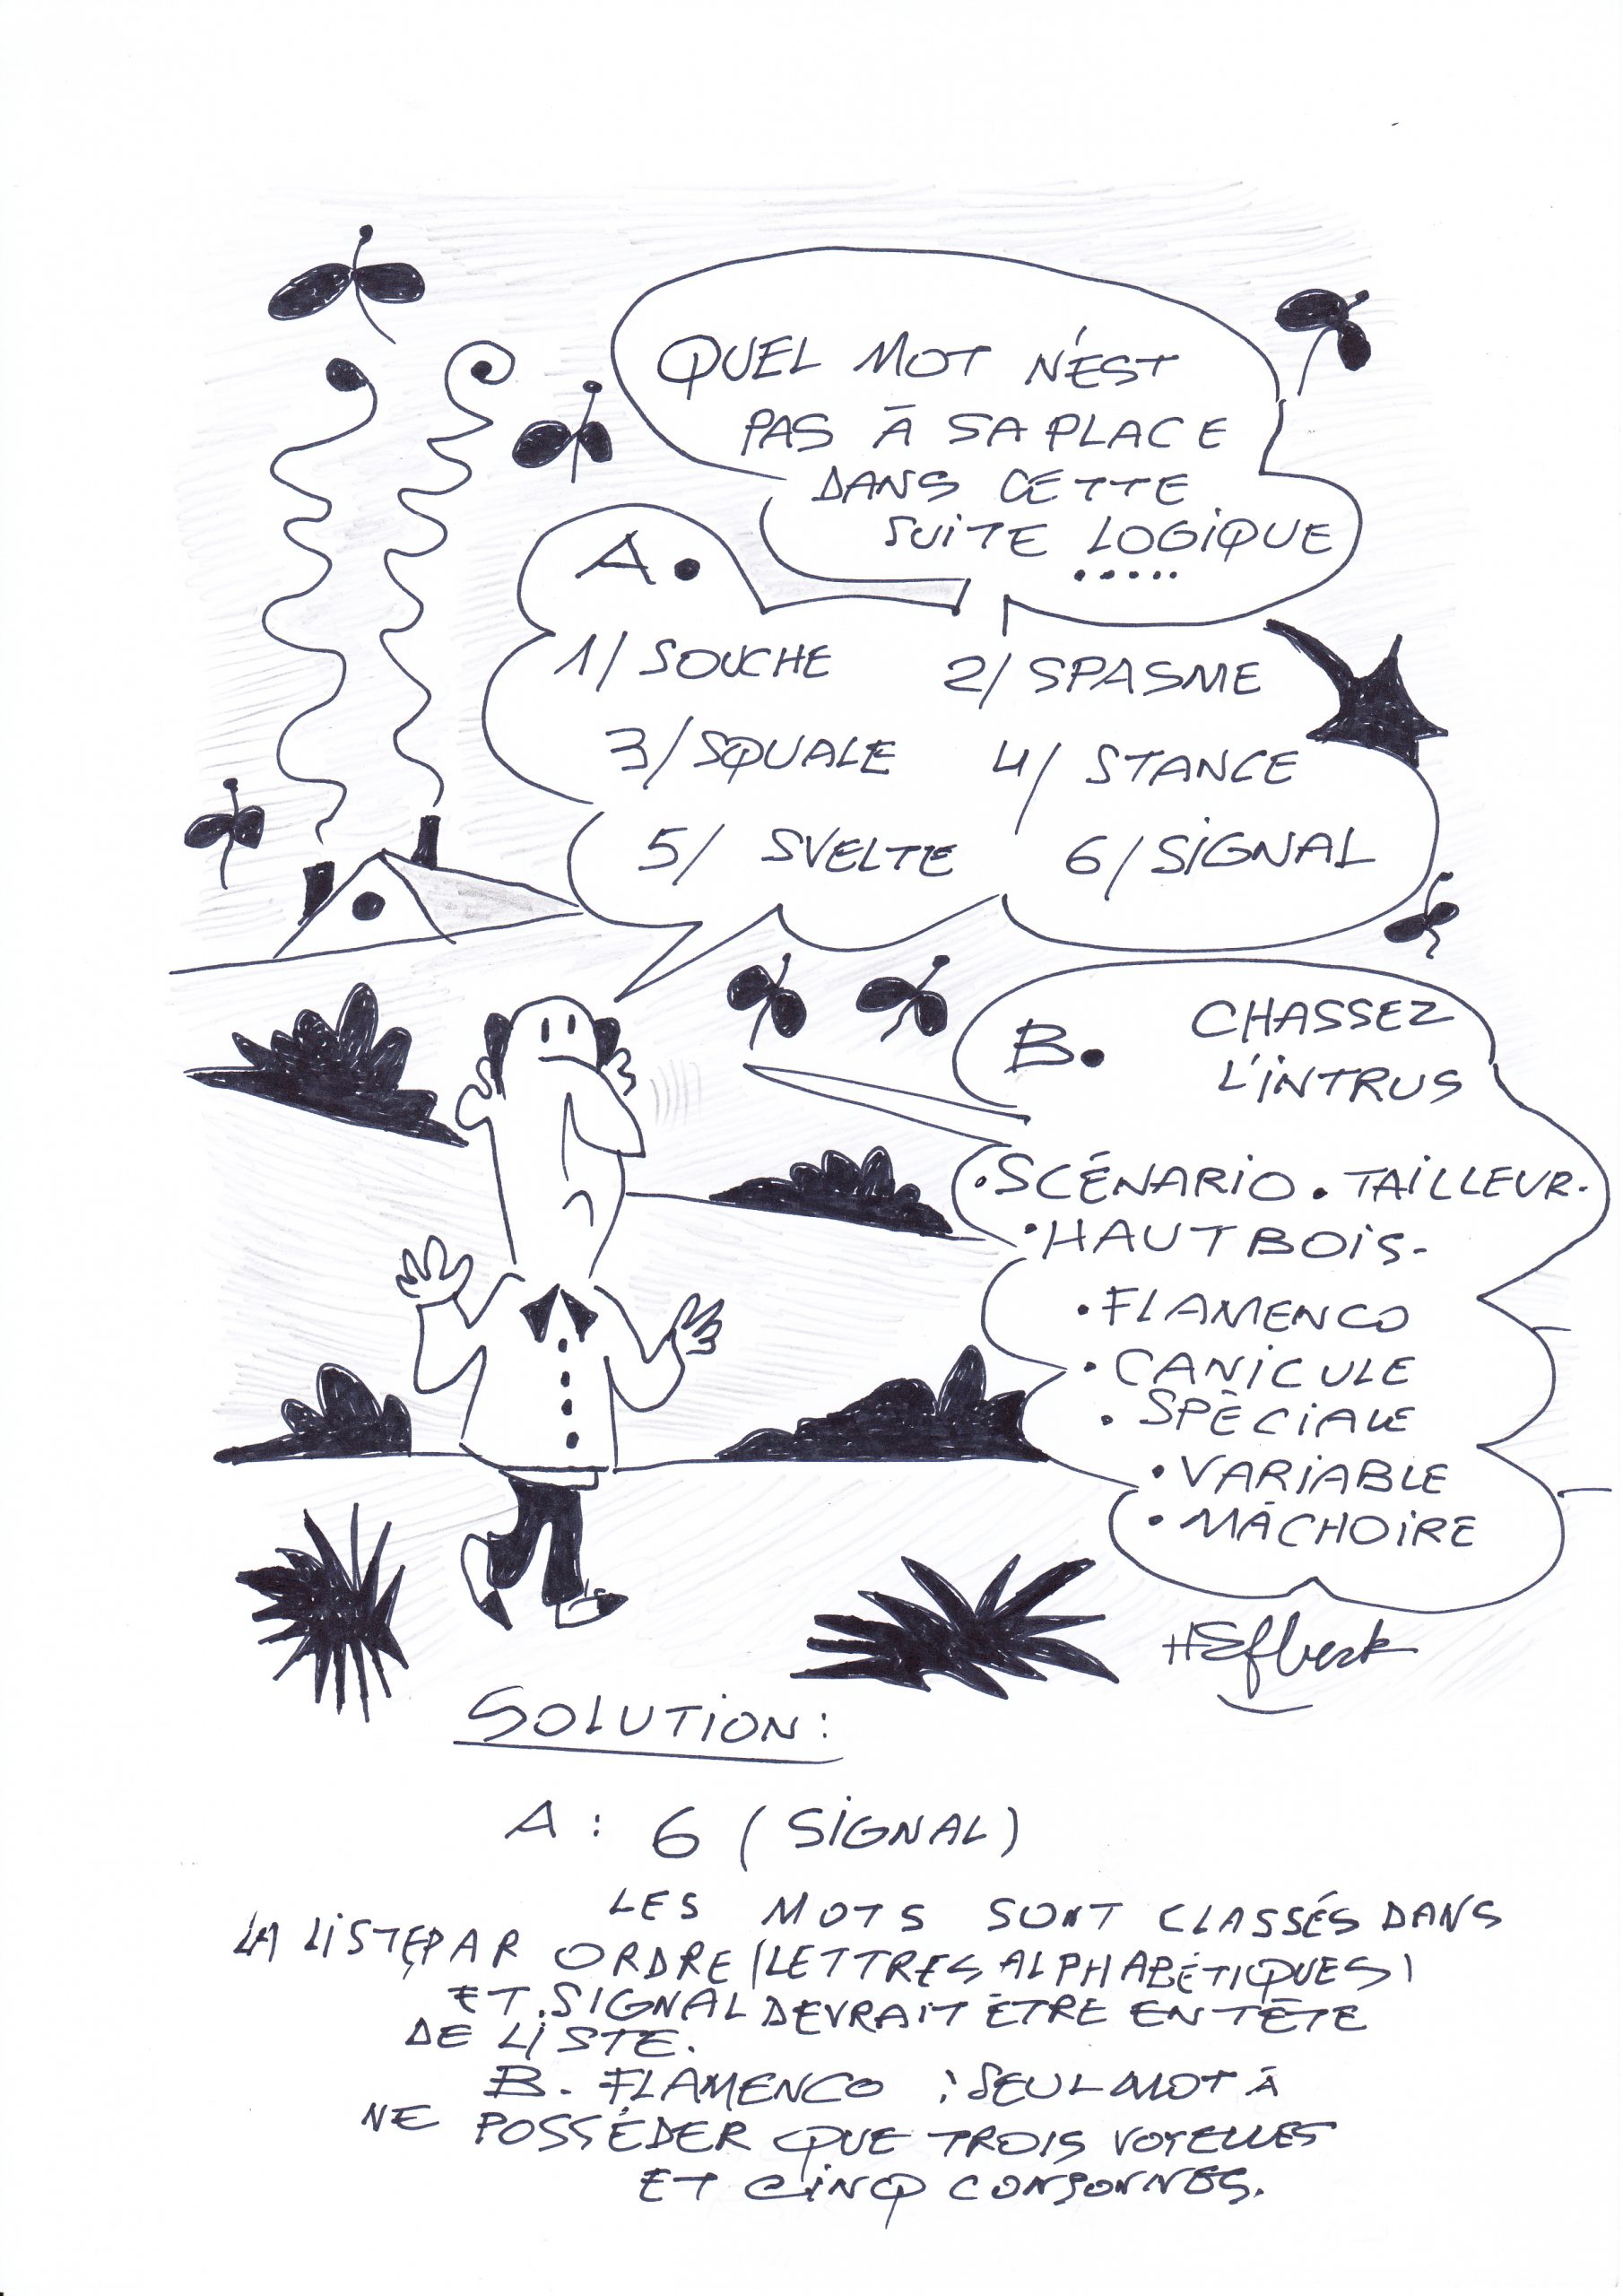 QUEL MOT N'EST
PAS À SA PLACE
DANS CETTE
SUITE LOGIQUE
.....
A.
1/ SOUCHE 2/ SPASME
3/ SQUALE 4/ STANCE
5/ SVELTE 6/ SIGNAL
B. CHASSEZ
L'INTRUS
. SCÉNARIO . TAILLEUR.
. HAUTBOIS.
. FLAMENCO
. CANICULE
. SPÉCIALE
. VARIABLE
. MÂCHOIRE
SOLUTION :
A : 6 ( SIGNAL )
LES MOTS SONT CLASSÉS DANS
LA LISTE PAR ORDRE (LETTRES ALPHABÉTIQUES)
ET SIGNAL DEVRAIT ÊTRE EN TÊTE
DE LISTE.
B. FLAMENCO : SEUL MOT À
NE POSSÉDER QUE TROIS VOYELLES
ET CINQ CONSONNES.